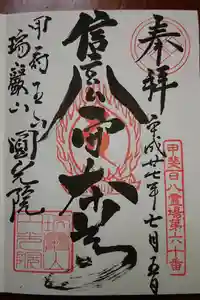 奉拝
平成廿七年七月五日
甲斐百八霊場第六十番
信玄公守本尊
甲府五山
瑞巖山 圓光院